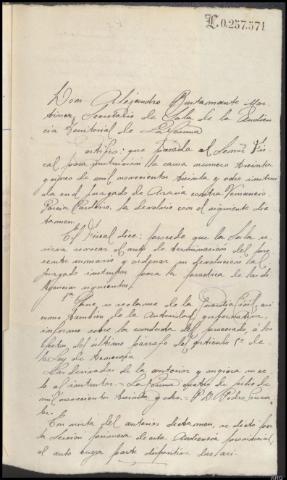 L.0.257.571
Don Alejandro Bustamante Mar-
tinez, Secretario de Sala de la Audien-
cia Territorial de
Certifico: que pasada al Señor Fis-
cal para la causa número treinta
y de mil novecientos treinta y ocho instrui-
da en el juzgado de contra Venancio
García la devolvió con el siguiente dic-
tamen.
El Fiscal dice: procede que la Sala se
sirva revocar el auto de terminación del pre-
sente sumario y ordenar su devolución al
juzgado instructor para la práctica de las di-
ligencias siguientes:
1ª Que se reclame de la Guardia Civil, así
como también de la Autoridad gubernativa
informe sobre la conducta del procesado, a los
efectos del último párrafo del artículo 1º de
la ley de
de la anterior y
al instructor = cuatro de julio de
mil novecientos treinta y ocho. Pedro
En vista del anterior dictamen, se dictó por
la Sección primera de esta Audiencia provincial,
el auto cuya parte dispositiva dice así: